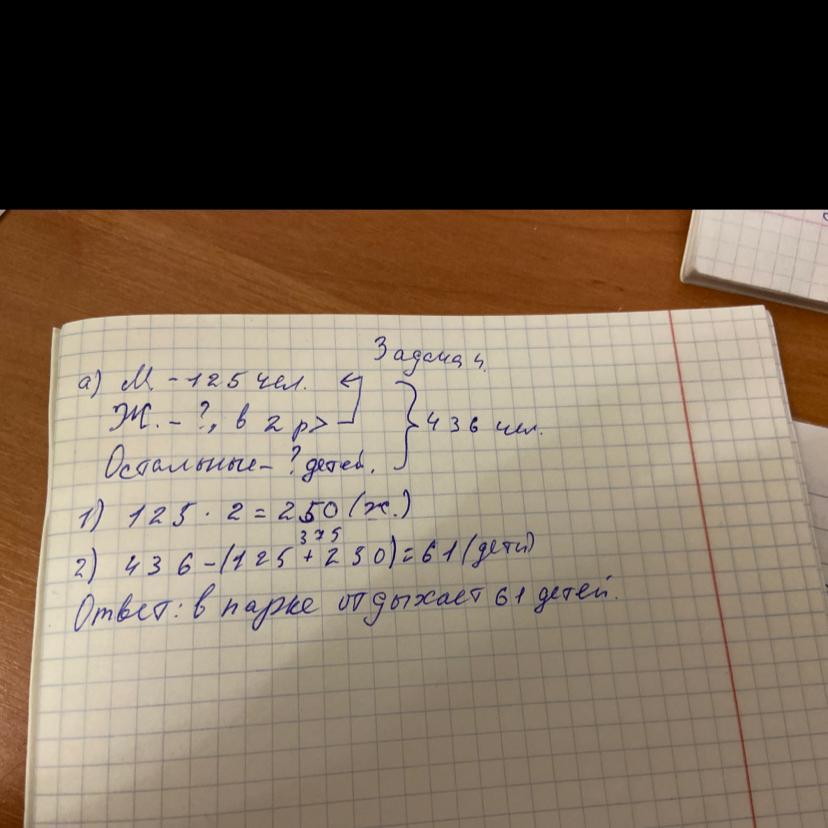 Задача 4.
а) М. - 125 чел.
Ж. - ?, в 2 р >
436 чел.
Остальные - ? детей.
1) 125 · 2 = 250 (ж.)
375
2) 436 - (125 + 250) = 61 (дети)
Ответ: в парке отдыхает 61 детей.